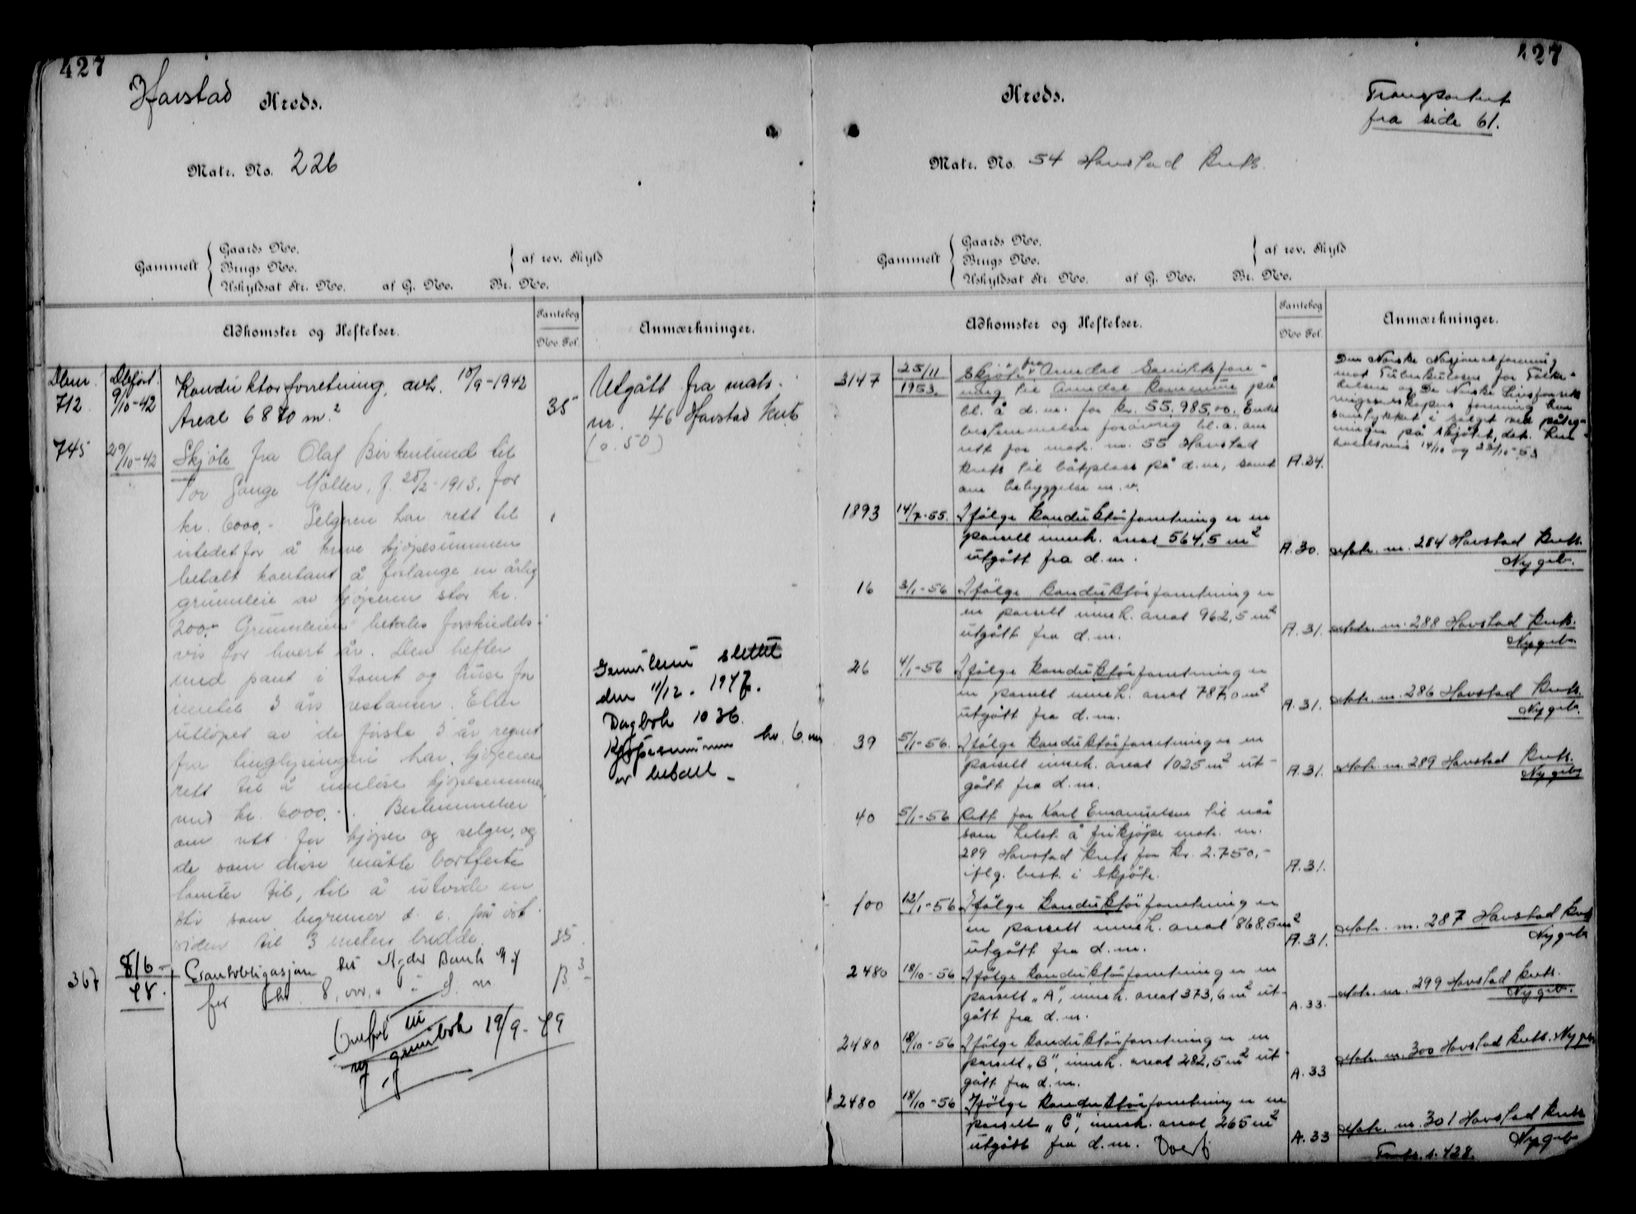 427
Havstad Kreds.
Matr. No. 226
Gammelt
Gaards No.
Brugs No.
Uskyldsat Str. No. af G. No. Br. No.
af rev. Skyld
Adkomster og Heftelser.
Pantebog
No. Fol.
Anmærkninger.
Dbnr. 712
Dbført. 9/10-42
Konduktørforretning, avh. 10/9-1942
Areal 6870 m.²
35
Utgått fra matr.
nr. 46 Havstad krets
(s. 50)
745
29/10-42
Skjöte fra Olaf Birkenlund til
Tor Gauge Möller, f. 28/2-1913, for
kr. 6000.- Selgeren har rett til
istedetfor å kreve kjöpesummen
betalt kontant å forlange en årlig
grunnleie av kjöperen stor kr.
200.- Grunnleien betales forskudds-
vis for hvert år. Den hefter
med pant i tomt og huse for
inntil 3 års restanser. Etter
utlöpet av de förste 5 år regnet
fra tinglysingen har kjöperen
rett til å innlöse kjöpesummen
med kr. 6000.-. Bestemmelser
om rett for kjöper og selger, og
de som disse måtte bortfeste
tomter til, til å utvide en
sti som begrenser d. e. på
siden til 3 meters bredde.
35.
Grunnleien slettet
den 11/12. 1947.
Dagbok 1036.
Kjöpesummen kr. 6.000
er betalt -
367
8/6-48.
Pantobligasjon til Agder Bank A/S
for kr. 8.000,-
B 3
Overført til
ny grunnbok 19/9-49
427
Kreds.
Transportert
fra side 61.
Matr. No. 54 Havstad Krets.
Gammelt
Gaards No.
Brugs No.
Uskyldsat Str. No. af G. No. Br. No.
af rev. Skyld
Adkomster og Heftelser.
Pantebog
No. Fol.
Anmærkninger.
3147
25/11 1953.
Skjöte fra Arendal Sanitetsfore-
ning til Arendal kommune på
bl. å d.m. for kr. 55.985,00. Endel
bestemmelser forövrig bl.a. om
rett for matr. nr. 55 Havstad
krets til båtplass på d.m., samt
om bebyggelse m.v.
A.24.
Den Norske Nasjonalforening
mot Tuberkulosen for Folke-
helsen og De Norske Livsforsik-
ringsselskapers forening har
samtykket i salget ved påteg-
ninger på skjötet, dat. hen-
holdsvis 14/10 og 23/10-53
1893
14/7-55.
Ifölge konduktörforretning er en
parsell innh. areal 564,5 m²
utgått fra d.m.
A.30.
Matr. nr. 284 Havstad Krets.
Ny grb.
16
3/1-56
Ifölge konduktörforretning er
en parsell innh. areal 962,5 m²
utgått fra d.m.
A.31.
Matr. nr. 288 Havstad Krets.
Ny grb.
26
4/1-56
Ifölge konduktörforretning er
en parsell innh. areal 787,0 m²
utgått fra d.m.
A.31.
Matr. nr. 286 Havstad Krets.
Ny grb.
39
5/1-56.
Ifölge konduktörforretning er en
parsell innh. areal 1025 m² ut-
gått fra d.m.
A.31.
Matr. nr. 289 Havstad Krets.
Ny grb.
40
5/1-56
Rett for Karl Emanuelsen til når
som helst å frikjöpe matr. nr.
289 Havstad krets for kr. 2.750,-
iflg. best. i skjöte.
A.31.
100
12/1-56
Ifölge konduktörforretning er
en parsell innh. areal 868.5 m²
utgått fra d.m.
A.31.
Matr. nr. 287 Havstad Krets
Ny grb
2480
18/10-56
Ifölge konduktörforretning er en
parsell "A", innh. areal 373,6 m² ut-
gått fra d.m.
A.33.
Matr. nr. 299 Havstad Krets.
Ny grb.
2480
18/10-56
Ifölge konduktörforretning er en
parsell "B", innh. areal 282,5 m² ut-
gått fra d.m.
A.33
Matr. nr. 300 Havstad Krets. Ny grb
2480
18/10-56
Ifölge konduktörforretning er en
parsell "C", innh. areal 265 m²
utgått fra d.m. Overf
A.33
Matr. nr. 301 Havstad Krets
Ny grb
Forts. s. 428.